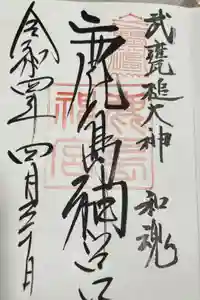 武甕槌大神 和魂
鹿島神宮
令和四年 四月三十日